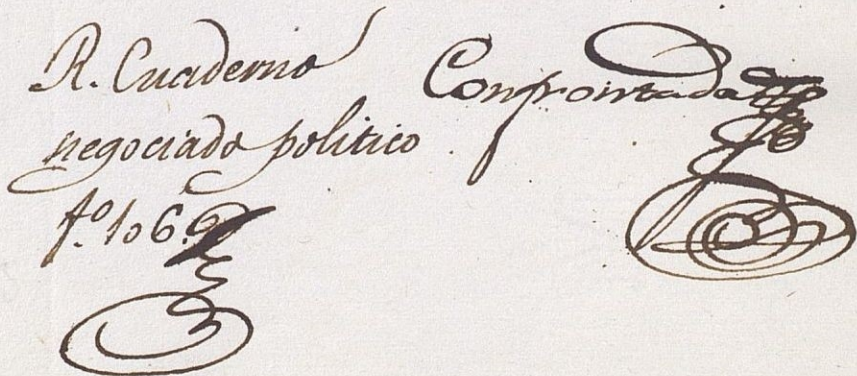 R. Cuaderno
negociado politico
fº. 106.
Confrontada